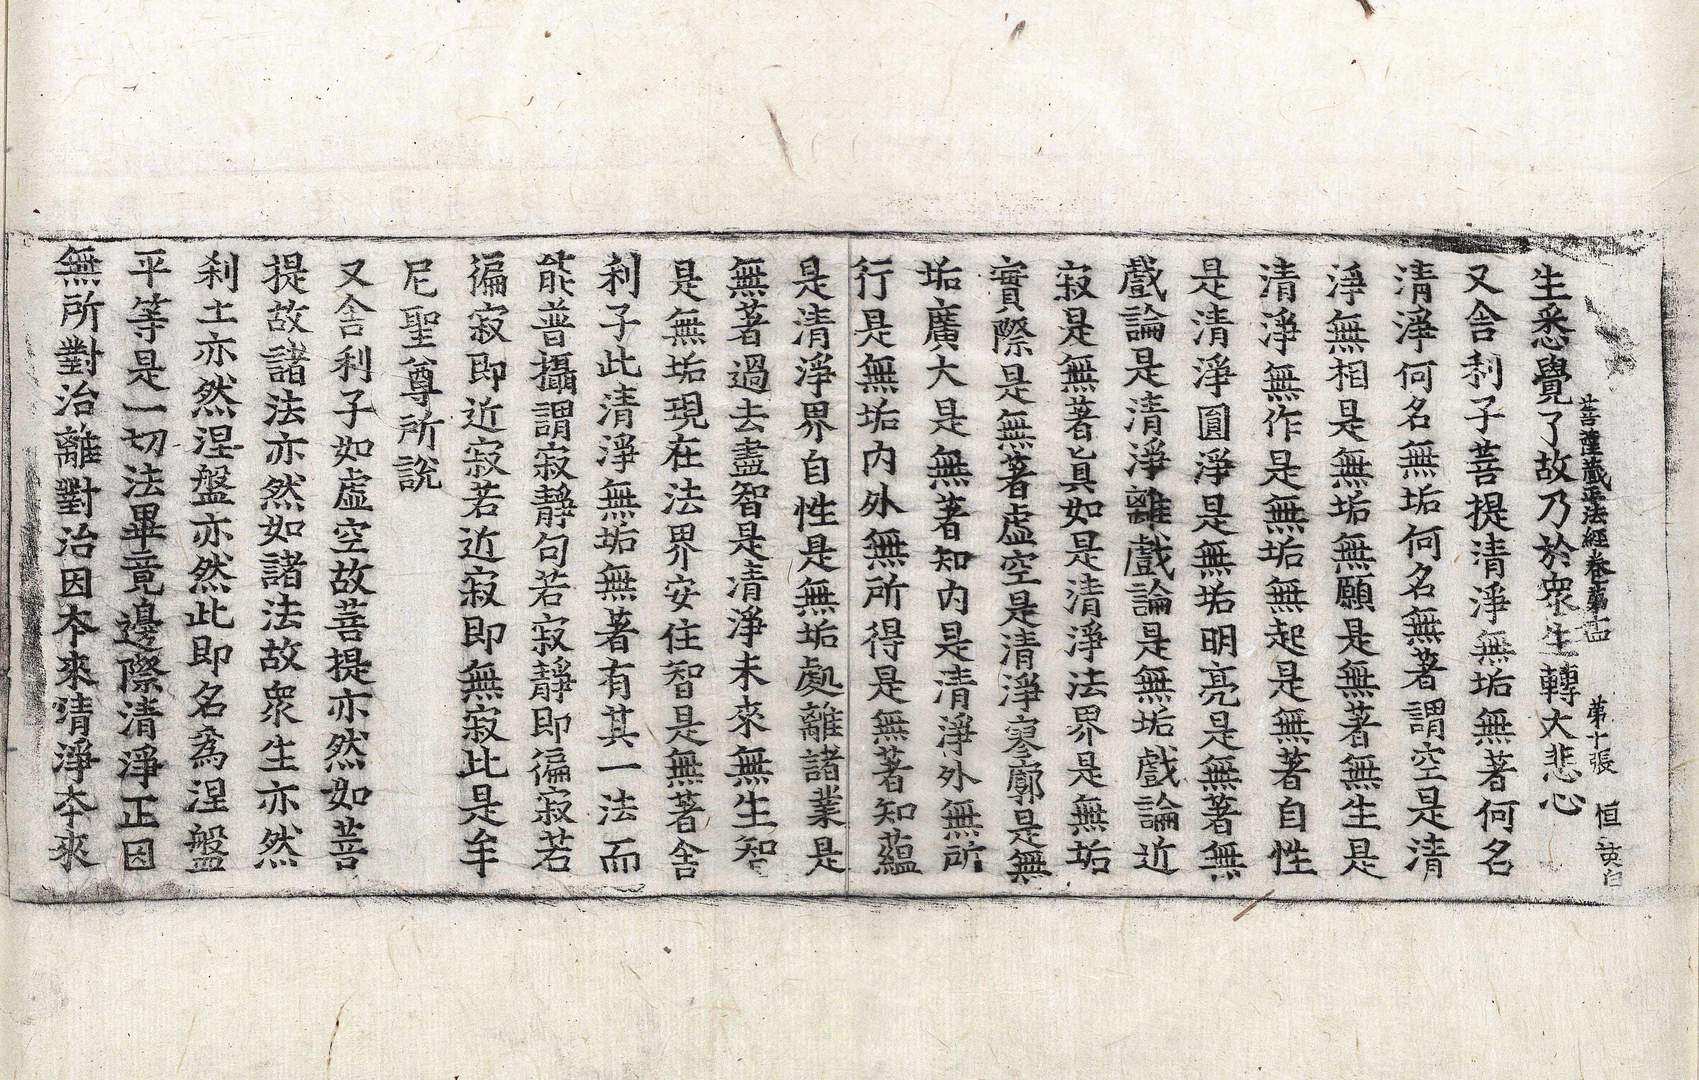 菩薩藏正法經卷第十四 第十張 恒 英白
生悉覺了故乃於衆生轉大悲心
又舍利子菩提清淨無垢無著何名
清淨何名無垢何名無著謂空是清
淨無相是無垢無願是無著無生是
清淨無作是無垢無起是無著自性
是清淨圓淨是無垢明亮是無著無
戲論是清淨離戲論是無垢戲論近
寂是無著眞如是清淨法界是無垢
實際是無著虛空是清淨寥廓是無
垢廣大是無著知內是清淨外無所
行是無垢內外無所得是無著知蘊
是清淨界自性是無垢處離諸業是
無著過去盡智是清淨未來無生智
是無垢現在法界安住智是無著舍
利子此清淨無垢無著有其一法而
能普攝謂寂靜句若寂靜即徧寂若
徧寂即近寂若近寂即無寂此是牟
尼聖尊所說
又舍利子如虛空故菩提亦然如菩
提故諸法亦然如諸法故衆生亦然
刹土亦然涅盤亦然此即名爲涅盤
平等是一切法畢竟邊際清淨正因
無所對治離對治因夲來清淨夲來